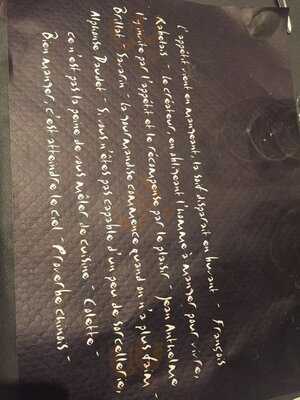 l'appétit vient en mangeant, la soif disparaît en buvant - François
Rabelais - Le créateur, en obligeant l'homme à manger pour vivre,
l'y invite par l'appétit et le récompense par le plaisir - Jean Anthelme
Brillat-Savarin - La gourmandise commence quand on n'a plus faim -
Alphonse Daudet - Si vous n'êtes pas capable d'un peu de sorcellerie,
ce n'est pas la peine de vous mêler de cuisine - Colette -
Bien manger, c'est atteindre le ciel - Proverbe chinois -